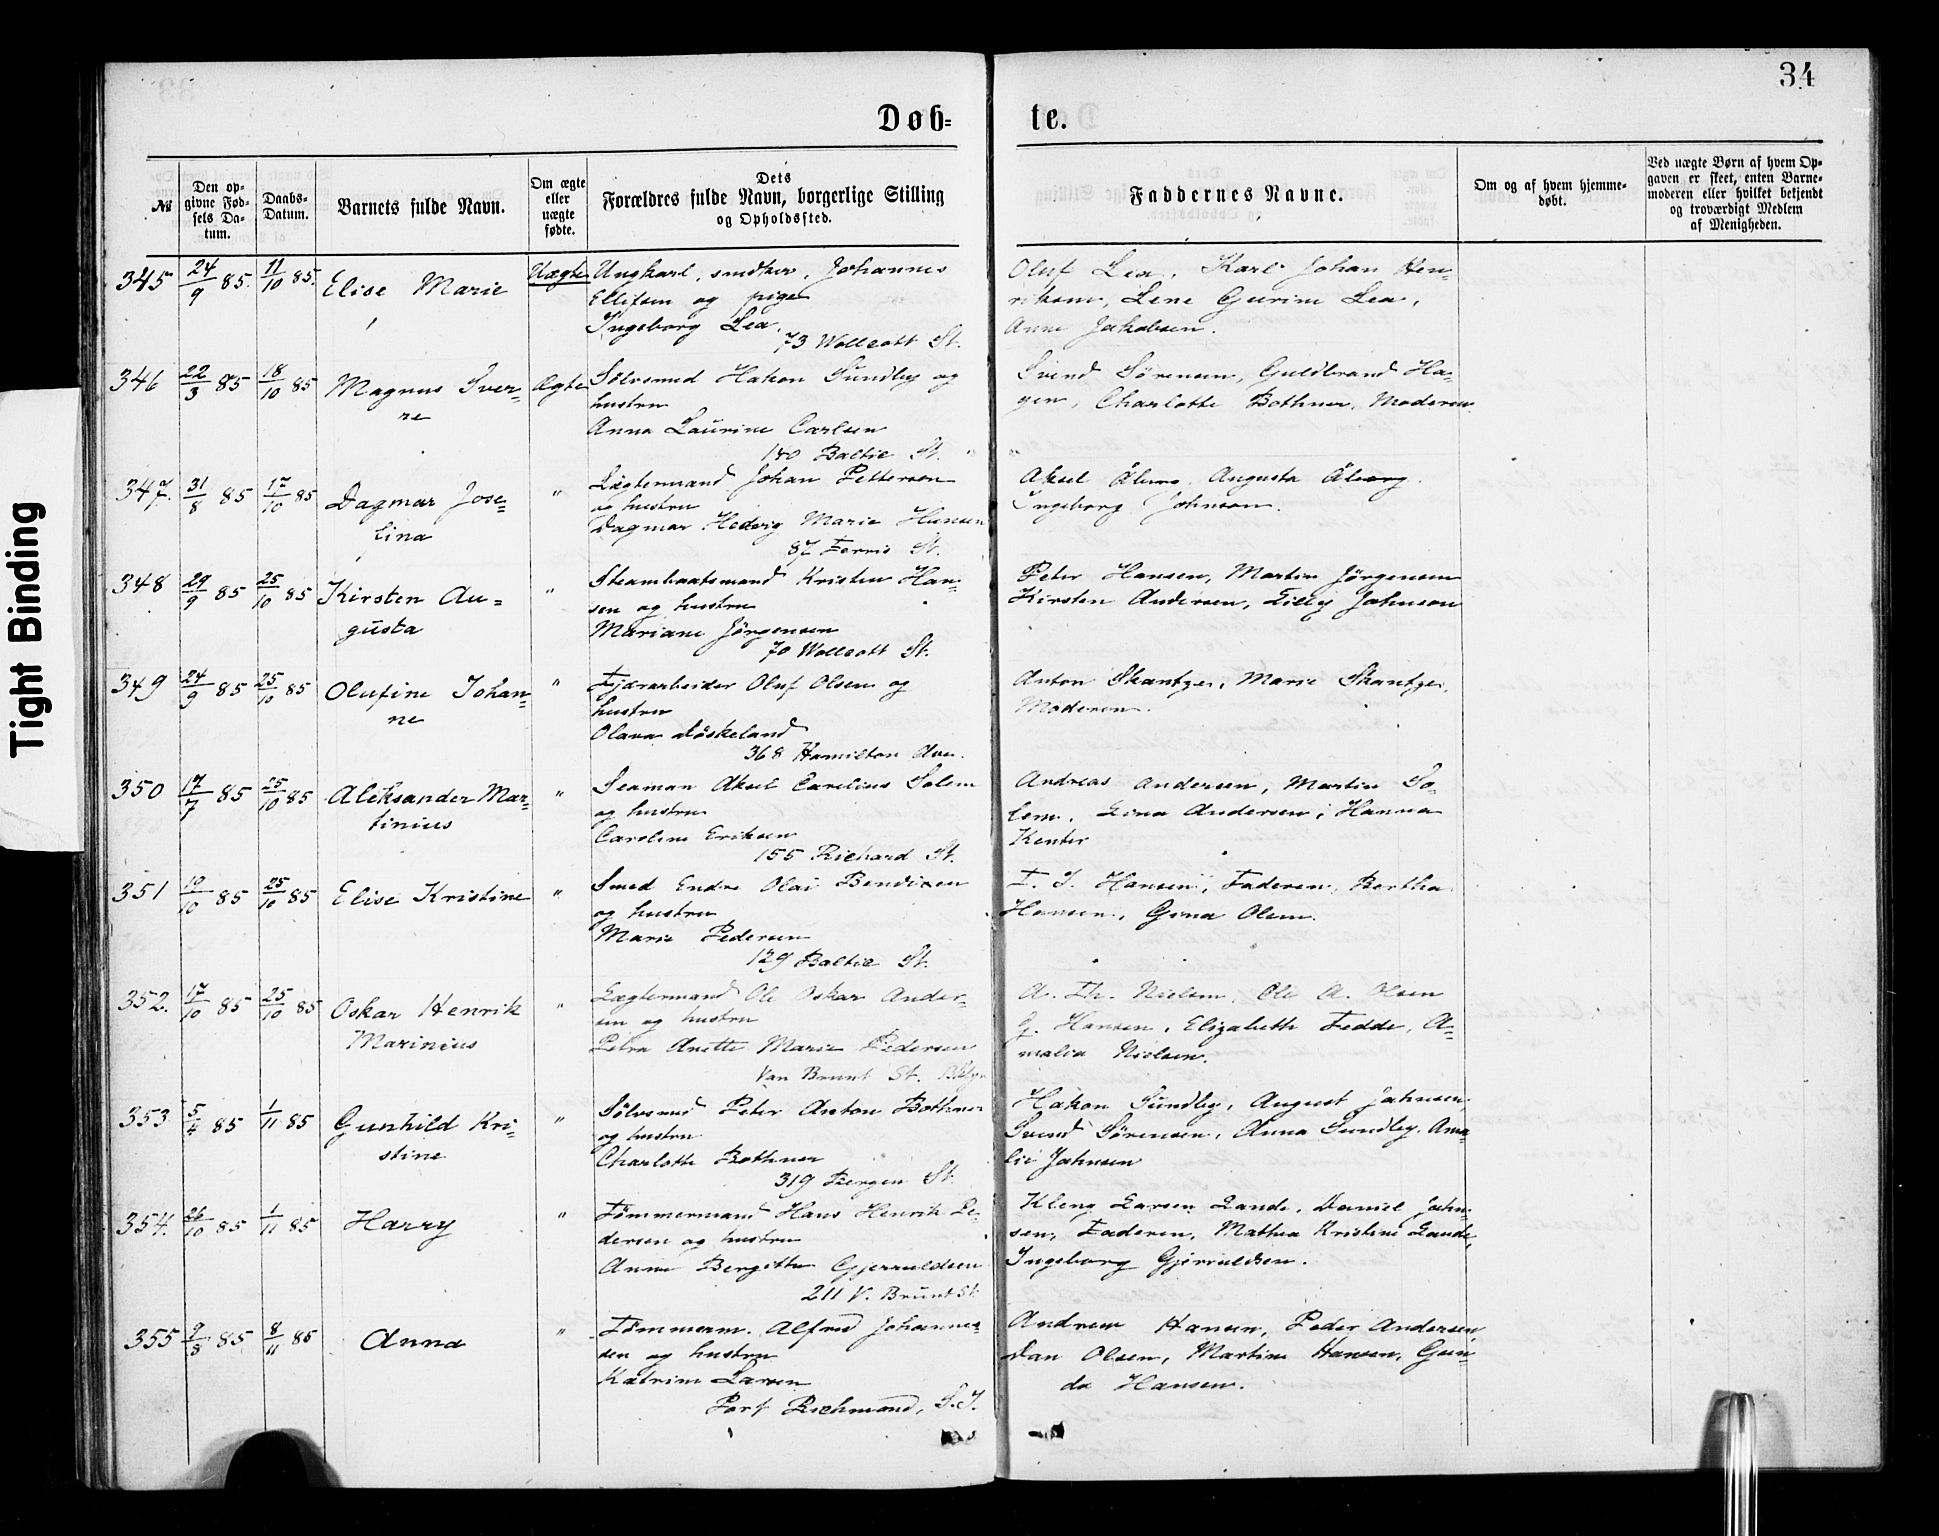 Tight Binding
34
Døb=
te.
№
Den op-
givne Fød-
sels Da-
tum.
Daabs-
Datum.
Barnets fulde Navn.
Om ægte
eller
uægte
fødte.
Dets
Forældres fulde Navn, borgerlige Stilling
og Opholdssted.
Faddernes Navne.
Om og af hvem hjemme-
døbt.
Ved uægte Børn af hvem Op-
gaven er skeet, enten Barne-
moderen eller hvilket bekjendt
og troværdigt Medlem
af Menigheden.
345 24/9 85. 11/10 85. Elise Marie Uægte
Ungkarl, snedker, Johannes
Ellifsen og pige
Ingeborg Lea.
73 Wollcott St.
Oluf Lea, Karl Johan Hen-
riksen, Lene Gurine Lea,
Anne Jakobsen.
346 22/3 85 18/10 85 Magnus Sver-
re
Ægte
Sölvsmed Hakon Sundby og
hustru
Anna Laurine Carlsen
140 Baltic St.
Svend Sörensen, Guldbrand Ha-
gen, Charlotte Bothner, Moderen
347. 31/8 85 17/10 85 Dagmar Jose-
fina
"
Lægtermand Johan Petterson
og hustru
Dagmar Hedvig Marie Hansen
87 Ferris St.
Aksel Åberg, Augusta Åberg.
Ingeborg Johnson.
348 29/9 85 25/10 85 Kirsten Au-
gusta
"
Steambaatsmand Kristen Han-
sen og hustru
Mariane Jörgensen
70 Wollcott St.
Peter Hansen, Martin Jörgensen
Kirsten Andersen, Lilly Johnson
349 24/9 85 25/10 85 Olufine Johan-
ne
"
Tjærarbeider Oluf Olsen og
hustru
Olava Löskeland
368 Hamilton Ave.
Anton Skantze, Marie Skantze,
Moderen.
350 17/7 85 25/10 85 Aleksander Mar-
tinius
"
Seaman Aksel Carelius Solem
og hustru
Caroline Eriksen
155 Richard St.
Andreas Andersen, Martin So-
lem, Lina Andersen, Hanna
Kenter
351 10/10 85 25/10 85 Elise Kristine
"
Smed Endre Olai Bendixen
og hustru
Marie Pedersen
129 Baltic St.
T. J. Hansen, Faderen, Bertha
Hansen, Gina Olsen.
352. 17/10 85 25/10 85 Oskar Henrik
Marinius
"
Lægtermand Ole Oskar Ander-
sen og hustru
Petra Anette Marie Pedersen
Van Brunt St.
A. Th. Nielsen, Ole A. Olsen
G. Hansen, Elizabeth Fedde, A-
malia Nielsen.
353 5/4 85 1/11 85 Gunhild Kri-
stine
"
Sölvsmed Peter Anton Bothner
og hustru
Charlotte Bothner
319 Bergen St.
Hakon Sundby, August Jahnsen,
Svend Sörensen, Anna Sundby, Ama-
lie Jahnsen
354. 26/10 85 1/11 85 Harry
"
Tömmermand Hans Henrik Pe-
dersen og hustru
Anne Bergitte Gjeruldsen
211 V. Brunt St.
Kleng Larsen Lande, Daniel Jahn-
sen, Faderen, Mathea Kristine Lande,
Ingeborg Gjeruldsen.
355 9/8 85 8/11 85 Anna
"
Tömmerm. Alfred Johannes-
sen og hustru
Katrine Larsen
Port Richmond, S.I.
Andrew Hansen, Peder Andersen,
Dan Olsen, Martine Hansen, Gun-
da Hansen.